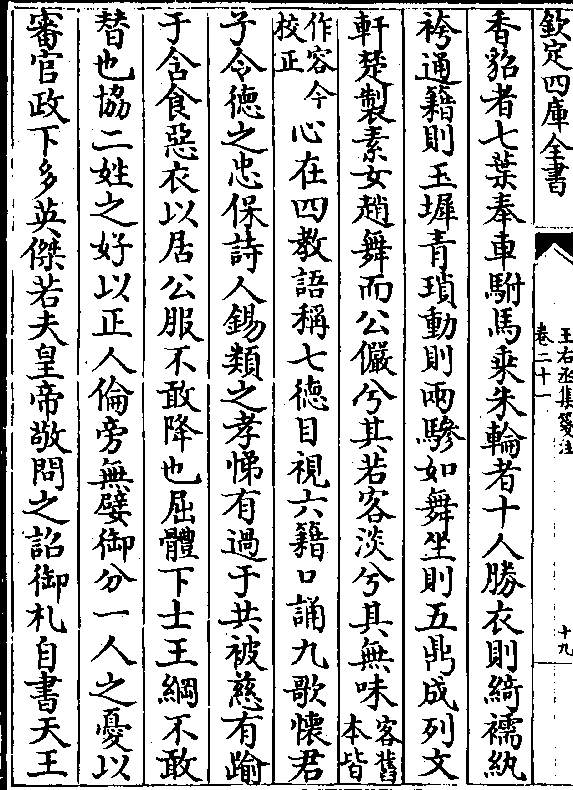 欽定四庫全書
王右丞集箋注
卷二十一
十九
香貂者七葉奉車駙馬乘朱輪者十人勝衣則綺襦紈
袴通籍則玉墀青瑣動則兩驂如舞坐則五鼎成列文
軒楚製素女趙舞而公儼兮其若客淡兮其無味客舊本皆
作容今校正心在四教語稱七德目視六籍口誦九歌懷君
子令德之忠保詩人錫類之孝悌有過于共被慈有踰
于含食惡衣以居公服不敢降也屈體下士王綱不敢
替也協二姓之好以正人倫旁無嬖御分一人之憂以
審官政下多英傑若夫皇帝敬問之詔御札自書天王